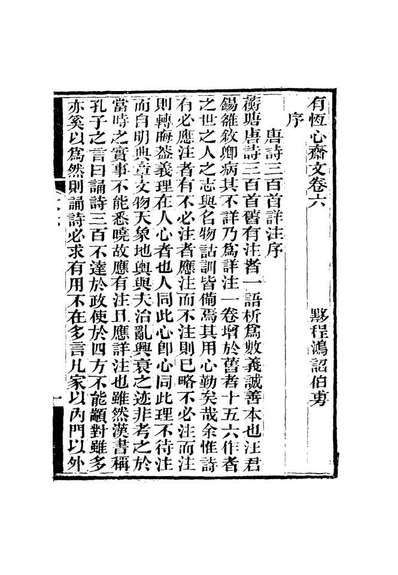 有恆心齋文卷六
序
黟程鴻詔伯旉
唐詩三百首詳注序
衡塘唐詩三百首舊有注者一語析爲數義誠善本也汪君
錫雒敘卿病其不詳乃爲詳注一卷增於舊者十五六作者
之世之人之志與名物詁訓皆備焉其用心勤矣哉余惟詩
有必應注者有不必注者應注而不注則已略不必注而注
則轉晦葢義理在人心者也人同此心卽心同此理不待注
而自明典章文物天象地輿與夫治亂興衰之迹非考之於
當時之實事不能悉曉故應有注且應詳注也雖然漢書稱
孔子之言曰誦詩三百不達於政使於四方不能顓對雖多
亦奚以爲然則誦詩必求有用不在多言凡家以內門以外